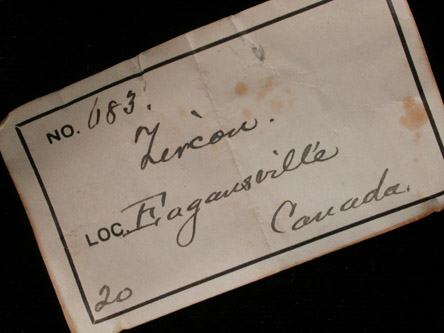 NO. 683.
Zircon.
LOC. Eagansville
Canada.
20